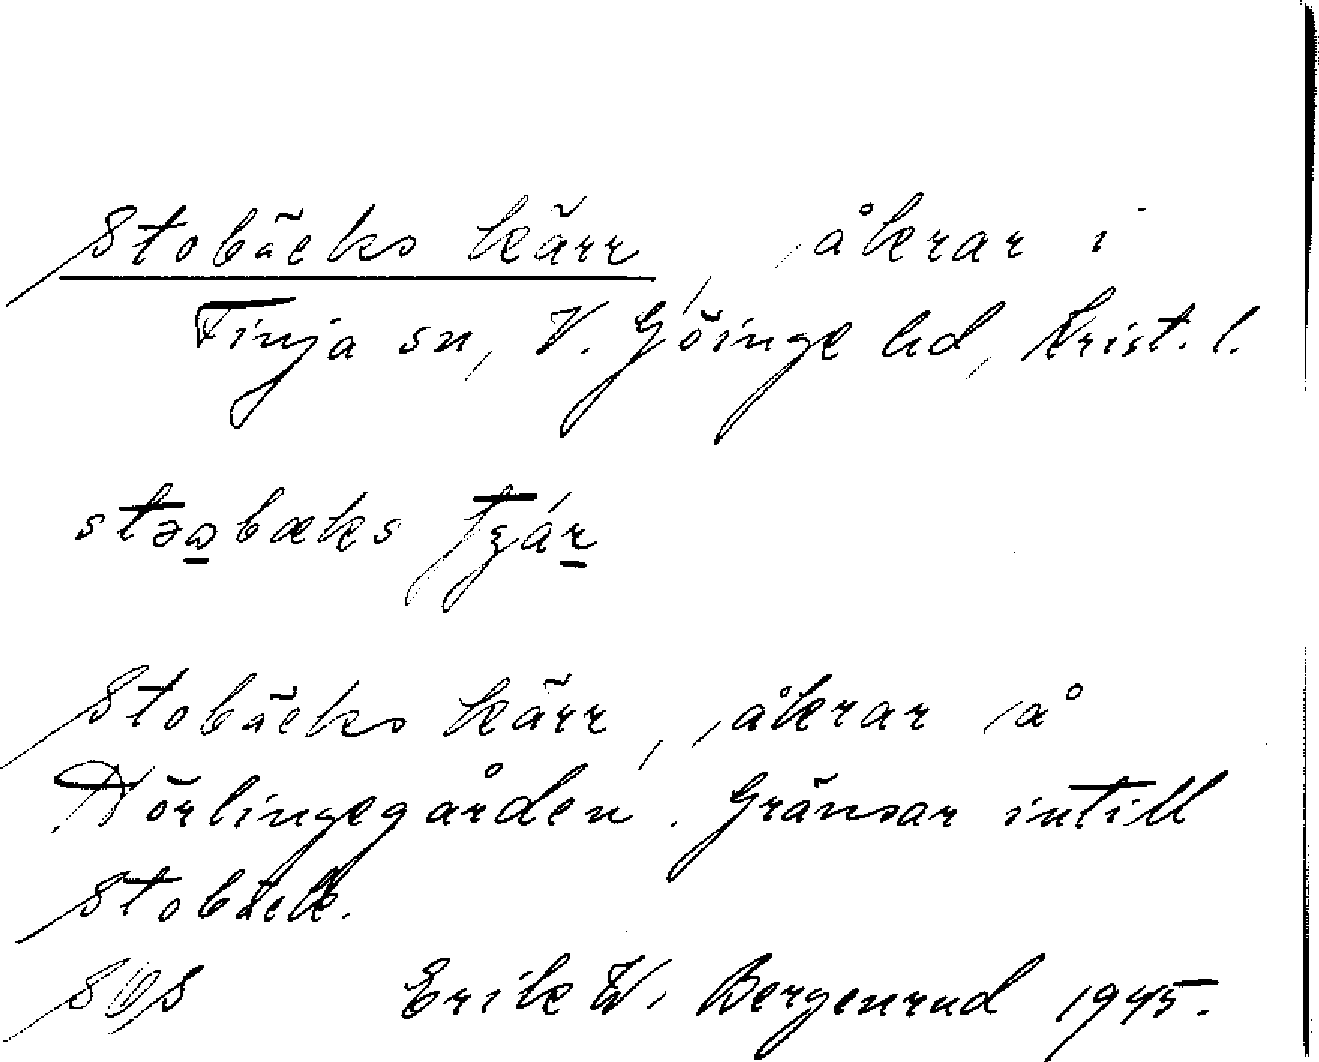 Stobäcks kärr, åkrar i
Finja sn, V. Göinge hd, Krist. l.
Stobäcks kärr, åkrar på
Nörlingegården. Gränsar intill
Stobäck.
SOS Erik W. Bergenrud 1945.